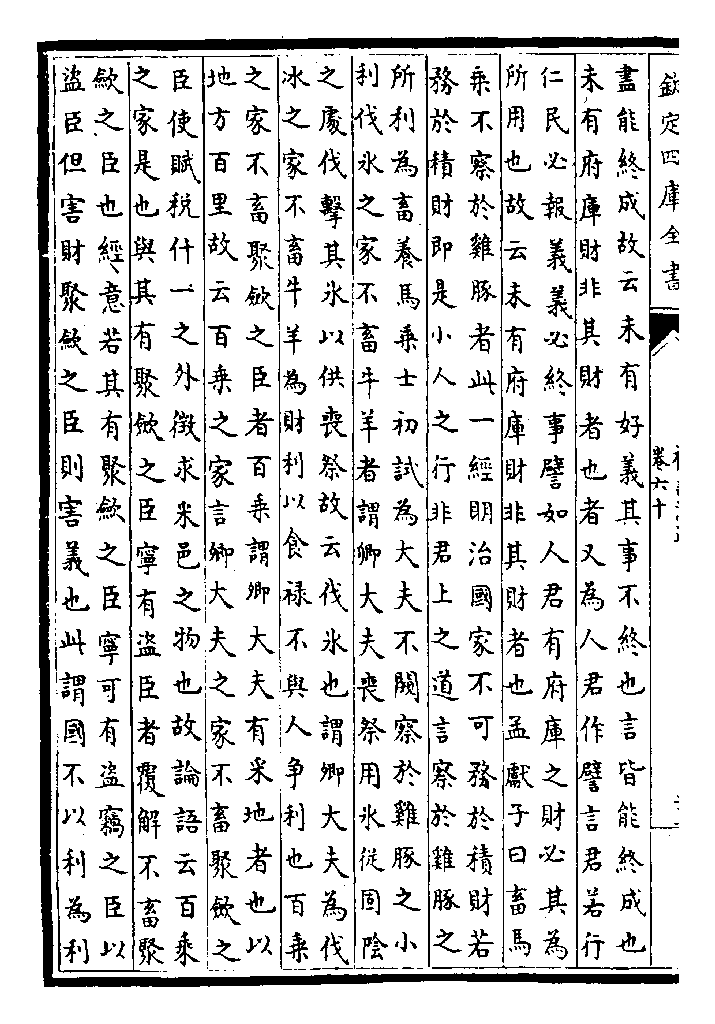 欽定四庫全書
卷六十
盡能終成故云未有好義其事不終也言皆能終成也
未有府庫財非其財者也者又為人君作譬言君若行
仁民必報義義必終事譬如人君有府庫之財必其為
所用也故云未有府庫財非其財者也孟獻子曰畜馬
乘不察於雞豚者此一經明治國家不可務於積財若
務於積財即是小人之行非君上之道言察於雞豚之
所利為畜養馬乘士初試為大夫不闚察於雞豚之小
利伐氷之家不畜牛羊者謂卿大夫喪祭用氷從固陰
之處伐擊其氷以供喪祭故云伐氷也謂卿大夫為伐
冰之家不畜牛羊為財利以食禄不與人争利也百乘
之家不畜聚斂之臣者百乘謂卿大夫有采地者也以
地方百里故云百乘之家言卿大夫之家不畜聚斂之
臣使賦税什一之外徴求采邑之物也故論語云百乘
之家是也與其有聚斂之臣寧有盜臣者覆解不畜聚
斂之臣也經意若其有聚斂之臣寧可有盜竊之臣以
盜臣但害財聚斂之臣則害義也此謂國不以利為利